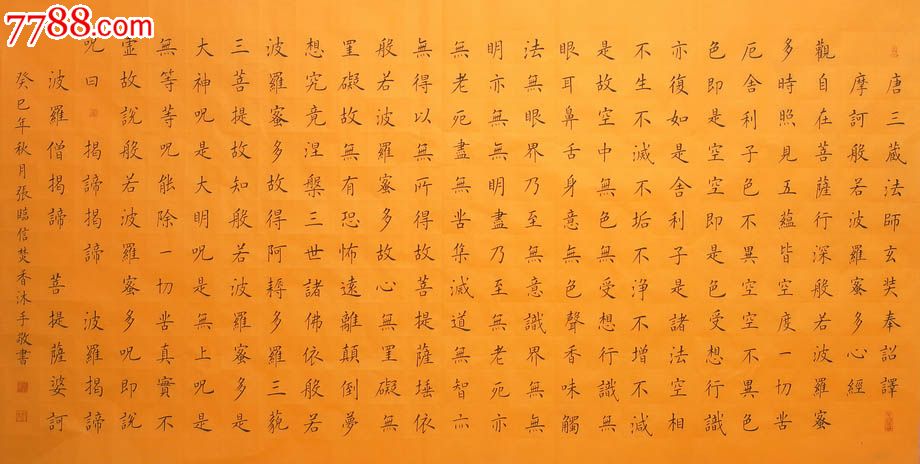 7788.com
唐三藏法師玄奘奉詔譯
摩訶般若波羅蜜多心經
觀自在菩薩行深般若波羅蜜
多時照見五蘊皆空度一切苦
厄舍利子色不異空空不異色
色即是空空即是色受想行識
亦復如是舍利子是諸法空相
不生不滅不垢不淨不增不減
是故空中無色無受想行識無
眼耳鼻舌身意無色聲香味觸
法無眼界乃至無意識界無無
明亦無無明盡乃至無老死亦
無老死盡無苦集滅道無智亦
無得以無所得故菩提薩埵依
般若波羅蜜多故心無罣礙無
罣礙故無有恐怖遠離顛倒夢
想究竟涅槃三世諸佛依般若
波羅蜜多故得阿耨多羅三藐
三菩提故知般若波羅蜜多是
大神呪是大明呪是無上呪是
無等等呪能除一切苦真實不
虛故說般若波羅蜜多呪即說
呪曰 揭諦揭諦 波羅揭諦
波羅僧揭諦 菩提薩婆訶
癸巳年秋月張臨信焚香沐手敬書